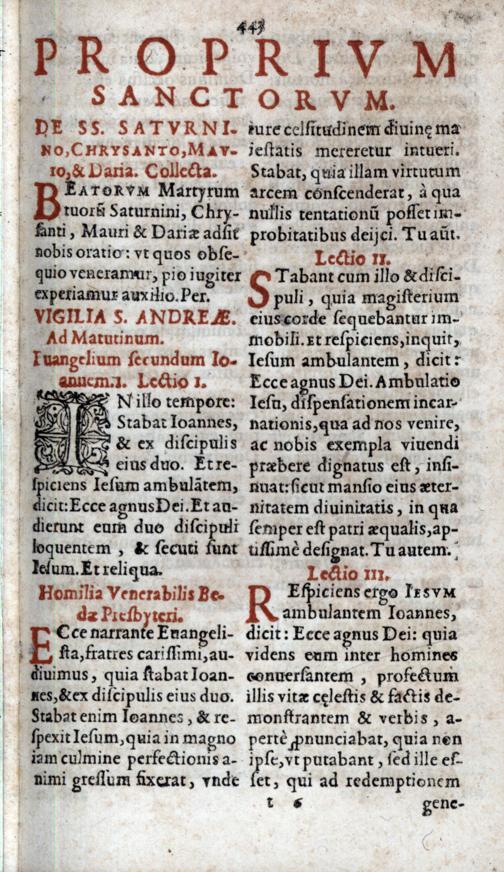 443
PROPRIVM
SANCTORVM.
DE SS. SATVRNI-
NO, CHRYSANTO, MAV-
ro, & Daria. Collecta.
BEATORVM Martyrum
tuorũ Saturnini, Chry-
santi, Mauri & Dariæ adsit
nobis oratio: vt quos obse-
quio veneramur, pio iugiter
experiamur auxilio. Per.
VIGILIA S. ANDREÆ.
Ad Matutinum.
Euangelium secundum Io-
annem. 1. Lectio I.
IN illo tempore:
Stabat Ioannes,
& ex discipulis
eius duo. Et re-
spiciens Iesum ambulãtem,
dicit: Ecce agnus Dei. Et au-
dierunt eum duo discipuli
loquentem, & secuti sunt
Iesum. Et reliqua.
Homilia Venerabilis Be-
dæ Presbyteri.
ECce narrante Euangeli-
sta, fratres carissimi, au-
diuimus, quia stabat Ioan-
nes, & ex discipulis eius duo.
Stabat enim Ioannes, & re-
spexit Iesum, quia in magno
iam culmine perfectionis a-
nimi gressum fixerat, vnde
iure celsitudinem diuinę ma
iestatis mereretur intueri.
Stabat, quia illam virtutum
arcem conscenderat, à qua
nullis tentationũ posset im-
probitatibus deijci. Tu aũt.
Lectio II.
STabant cum illo & disci-
puli, quia magisterium
eius corde sequebantur im-
mobili. Et respiciens, inquit,
Iesum ambulantem, dicit:
Ecce agnus Dei. Ambulatio
Iesu, dispensationem incar-
nationis, qua ad nos venire,
ac nobis exempla viuendi
præbere dignatus est, insi-
nuat: sicut mansio eius æter-
nitatem diuinitatis, in qua
semper est patri æqualis, ap-
tissimè designat. Tu autem.
Lectio III.
REspiciens ergo IESVM
ambulantem Ioannes,
dicit: Ecce agnus Dei: quia
videns eum inter homines
conuersantem, profectum
illis vitæ cęlestis & factis de-
monstrantem & verbis, a-
pertè ꝓnunciabat, quia non
ipse, vt putabant, sed ille es-
set, qui ad redemptionem
t 6 gene-